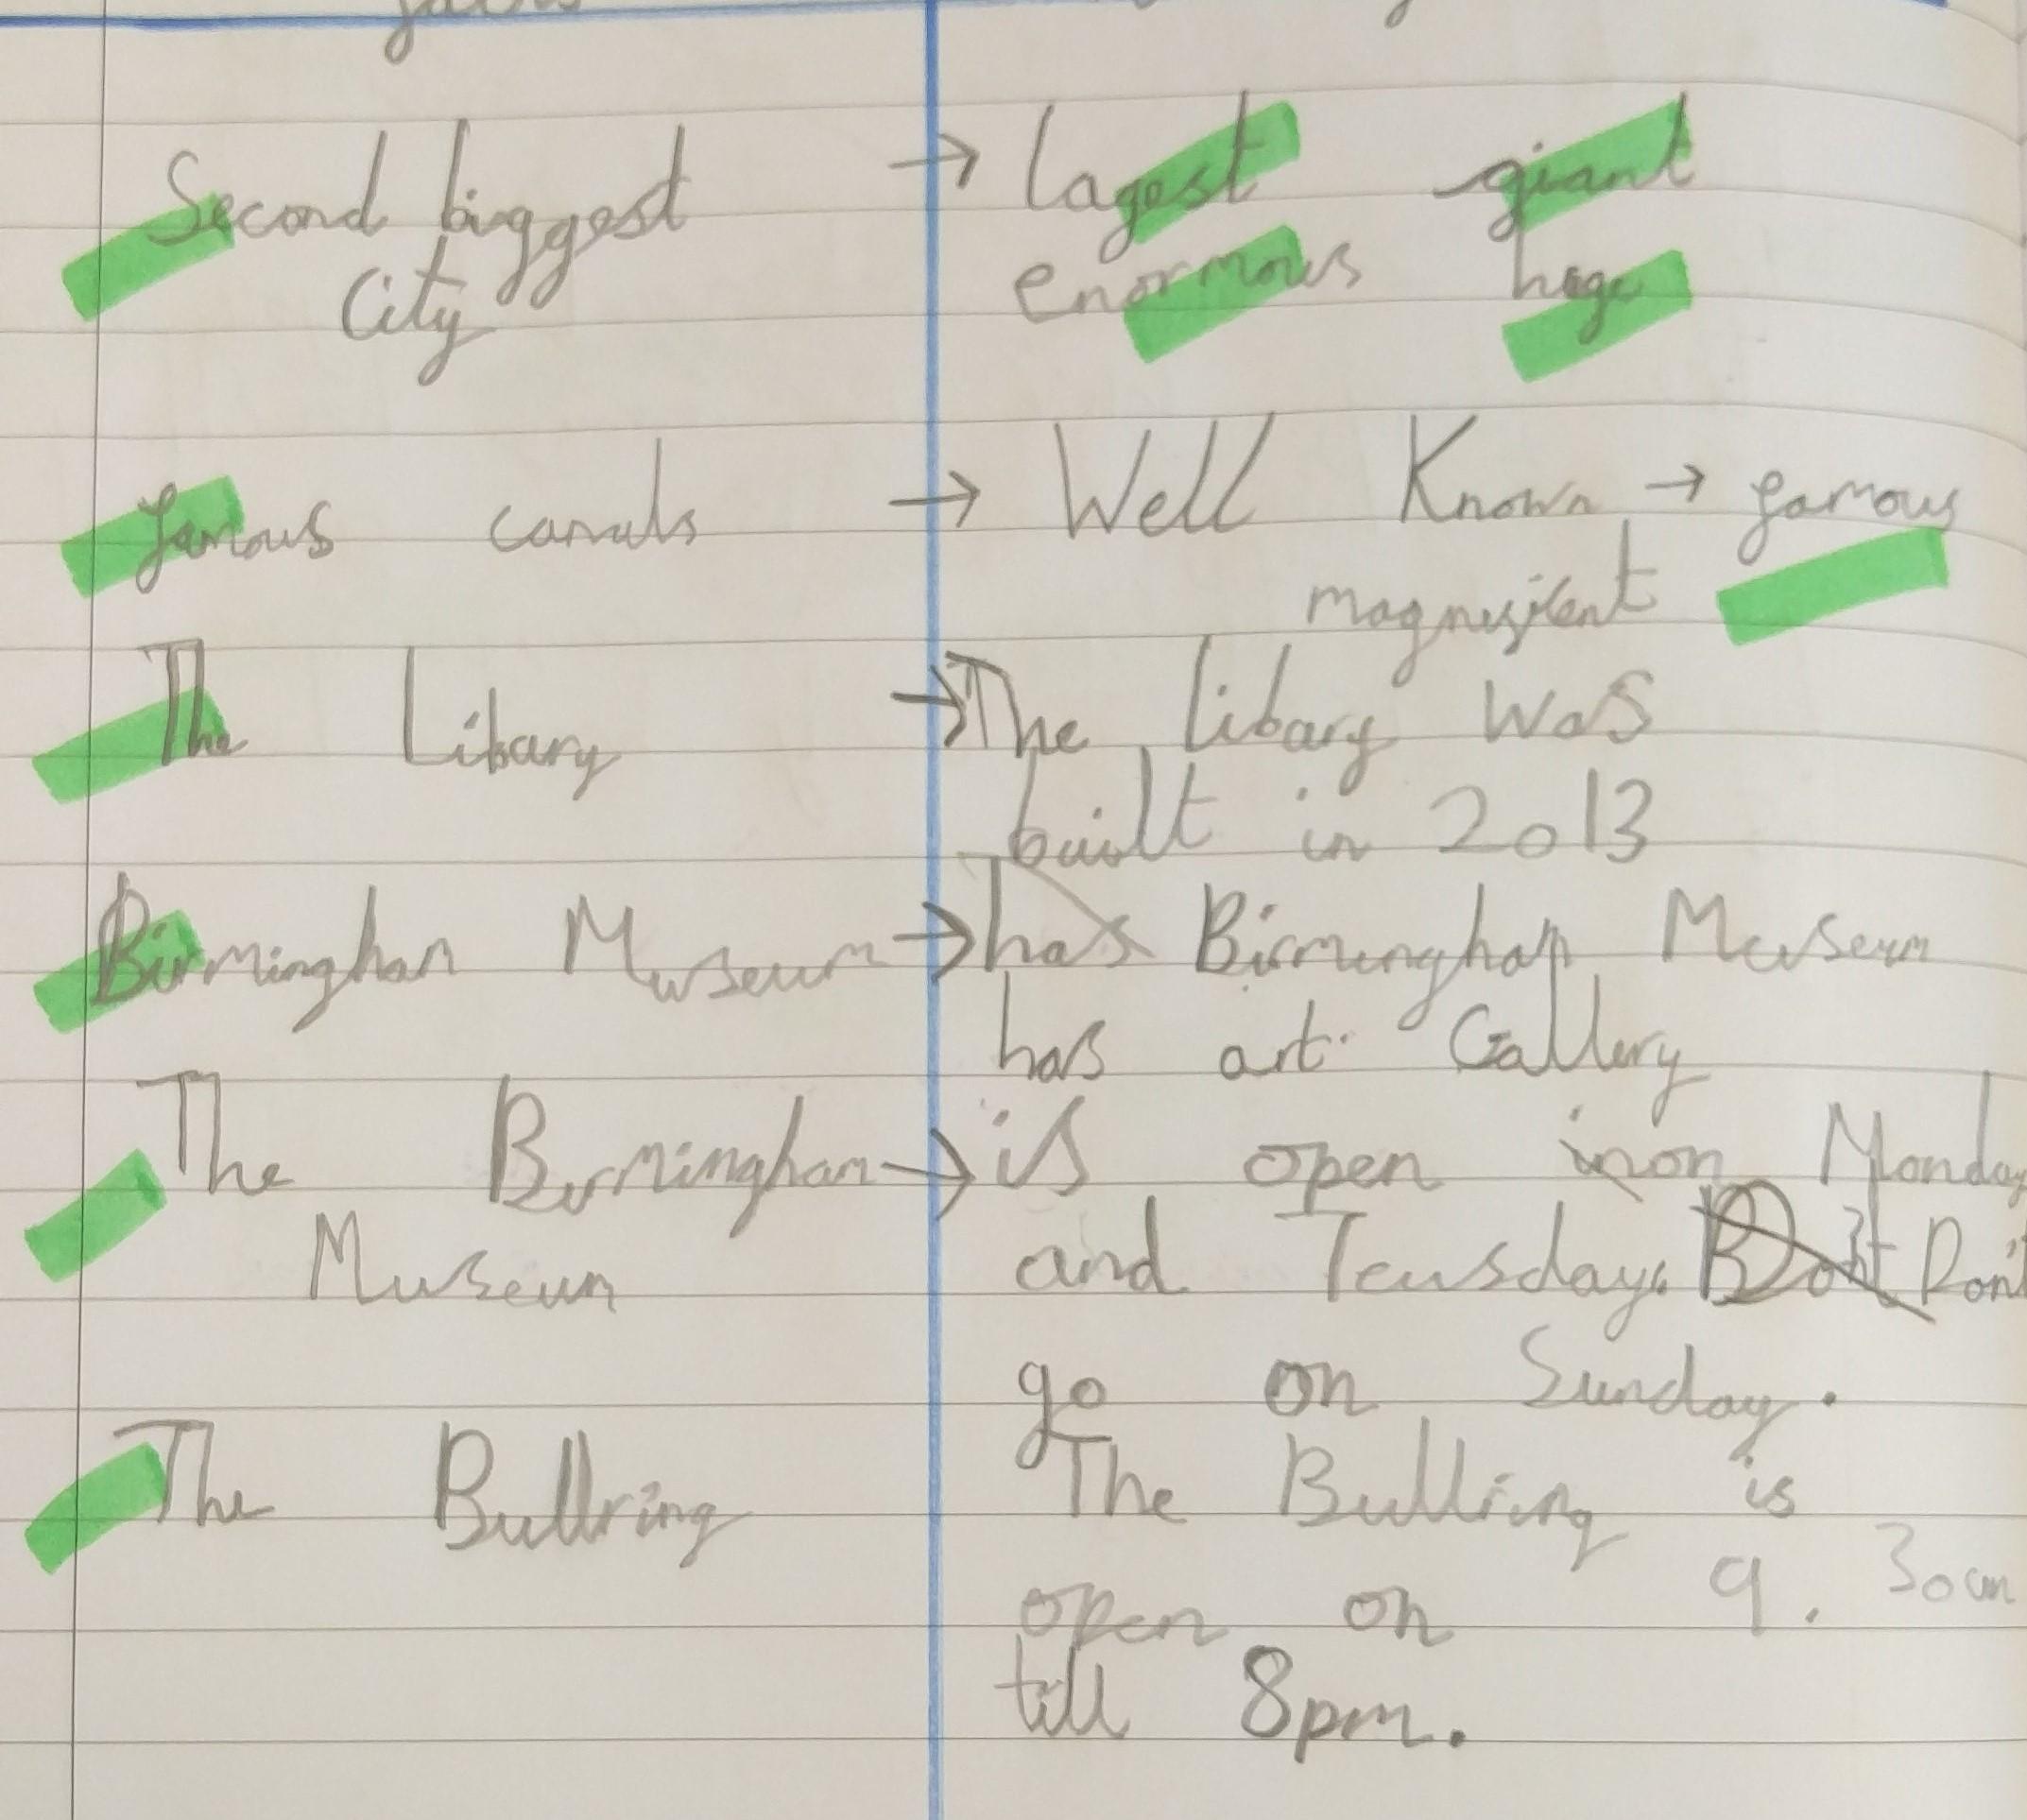 Second biggest → lagest giant
City enormous huge
famous canals → Well Known → famous
magnesifent
The Libary → The libary was
built in 2013
Birminghan Museum → has Birmingham Museum
has art Gallery
The Birmingham → is open in on Monday
Museum and Teusday. Don't Don't
go on Sunday.
The Bullring The Bullring is
open on 9.30am
till 8pm.